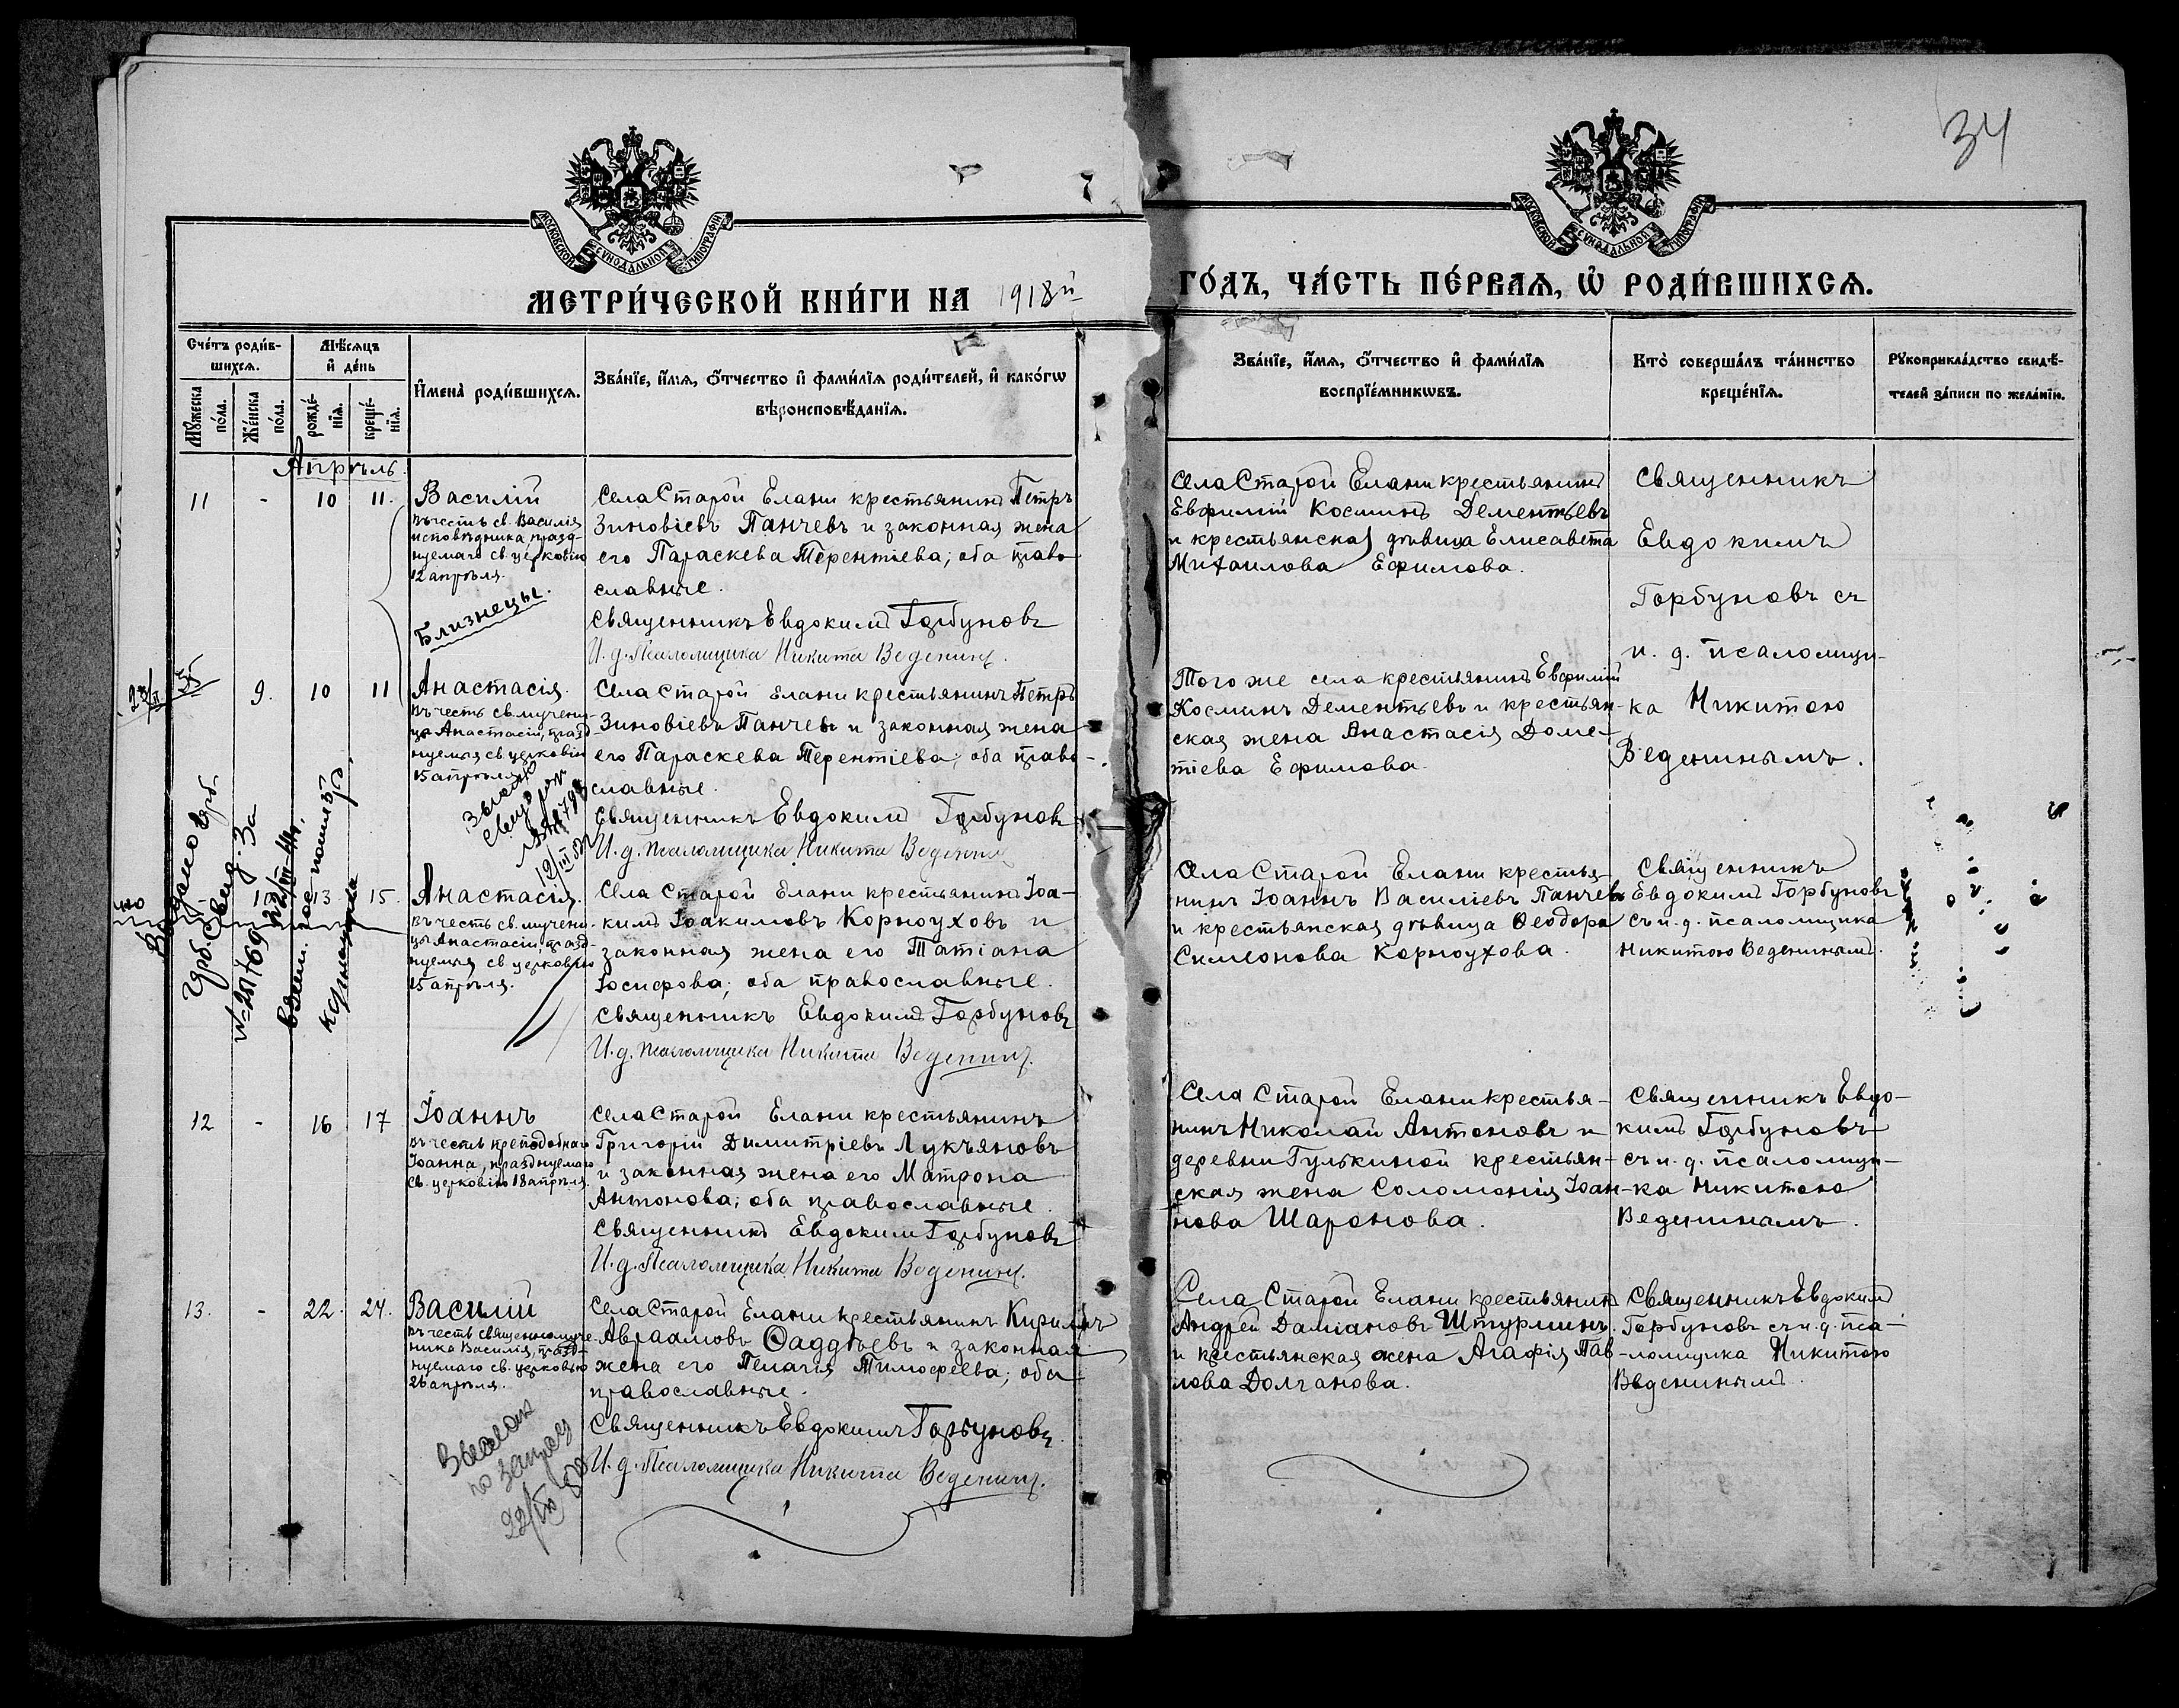 34
МОСКОВСКОЙ СѴНОДАЛЬНОЙ ТИПОГРАФІИ
МОСКОВСКОЙ СѴНОДАЛЬНОЙ ТИПОГРАФІИ
МЕТРИ́ЧЕСКОЙ КНИ́ГИ НА 1918й
ГО́ДЪ, ЧА́СТЬ ПЕ́РВАѦ, Ѽ РОДИ́ВШИХСѦ.
Сче́тъ роди́в-
шихсѧ.
Мꙋжеска
по́ла.
Же́нска
по́ла.
Мѣ́сѧцъ
и҆ де́нь
рожде́-
нїѧ.
креще́-
нїѧ.
И҆мена̀ роди́вшихсѧ.
Зва́нїе, и҆́мѧ, ѻ҆́тчество и҆ фами́лїѧ роди́телей, и҆ како́гѡ
вѣроисповѣ́данїѧ.
Зва́нїе, и҆́мѧ, ѻ҆́тчество и҆ фами́лїѧ
воспрїе́мникѡвъ.
Кто̀ соверша́лъ та́инство
креще́нїѧ.
Рꙋкоприкла́дство свидѣ́-
телей за́писи по жела́нїю.
Апрѣль.
11 - 10 11.
Василій
въ честь св. Василія
исповѣдника, празд-
нуемаго св. церковію
12 апрѣля.
Близнецы.
Села Старой Елани крестьянинъ Петръ
Зиновіевъ Панчевъ и законная жена
его Параскева Терентіева; оба право-
славные.
Священникъ Евдокимъ Горбуновъ
И. д. Псаломщика Никита Веденинъ.
Села Старой Елани крестьянинъ
Евфимій Косминъ Дементьевъ
и крестьянская дѣвица Елисавета
Михаилова Ефимова.
Священникъ
Евдокимъ
Горбуновъ съ
и. д. псаломщи-
ка Никитою
Веденинымъ.
9. 10 11
Анастасія.
въ честь св. мучени-
цы Анастасіи, празд-
нуемыя св. церковію
15 апрѣля.
Села Старой Елани крестьянинъ Петръ
Зиновіевъ Панчевъ и законная жена
его Параскева Терентіева; оба право-
славные.
Священникъ Евдокимъ Горбуновъ
И. д. псаломщика Никита Веденинъ
Того же села крестьянинъ Евфимій
Косминъ Дементьевъ и крестьян-
ская жена Анастасія Доме-
тіева Ефимова.
Выдано
свид. За
10 13 15.
Анастасія.
въ честь св. мучени-
цы Анастасіи, празд-
нуемыя св. церковію
15 апрѣля.
Села Старой Елани крестьянинъ Іоа-
кимъ Іоакимовъ Корноуховъ и
законная жена его Татіана
Іосифова; оба православные.
Священникъ Евдокимъ Горбуновъ
И. д. псаломщика Никита Веденинъ.
Села Старой Елани крестья-
нинъ Іоаннъ Василіевъ Панчевъ
и крестьянская дѣвица Ѳеодора
Симеонова Корноухова.
Священникъ
Евдокимъ Горбуновъ
съ и. д. псаломщика
Никитою Веденинымъ.
12 - 16 17
Іоаннъ
въ честь преподобнаго
Іоанна, празднуемаго
св. церковію 18 апрѣля.
Села Старой Елани крестьянинъ
Григорій Димитріевъ Лукъяновъ
и законная жена его Матрона
Антонова; оба православные.
Священникъ Евдокимъ Горбуновъ
И. д. Псаломщика Никита Веденинъ.
Села Старой Елани крестья-
нинъ Николай Антоновъ и
деревни Гулькиной крестьян-
ская жена Соломонія Іоан-
нова Шаронова.
Священникъ Евдо-
кимъ Горбуновъ
съ и. д. псаломщи-
ка Никитою
Веденинымъ.
13. - 22. 24.
Василій
въ честь священномуче-
ника Василія, празд-
нуемаго св. церковію
26 апрѣля.
Села Старой Елани крестьянинъ Кириллъ
Авраамовъ Ѳаддѣевъ и законная
жена его Пелагія Тимофеева; оба
православные.
Священникъ Евдокимъ Горбуновъ
И. д. Псаломщика Никита Веденинъ.
Села Старой Елани крестьянинъ
Андрей Даміановъ Штурминъ
и крестьянская жена Агафія Пав-
лова Долганова.
Священникъ Евдокимъ
Горбуновъ съ и. д. пса-
ломщика Никитою
Веденинымъ.